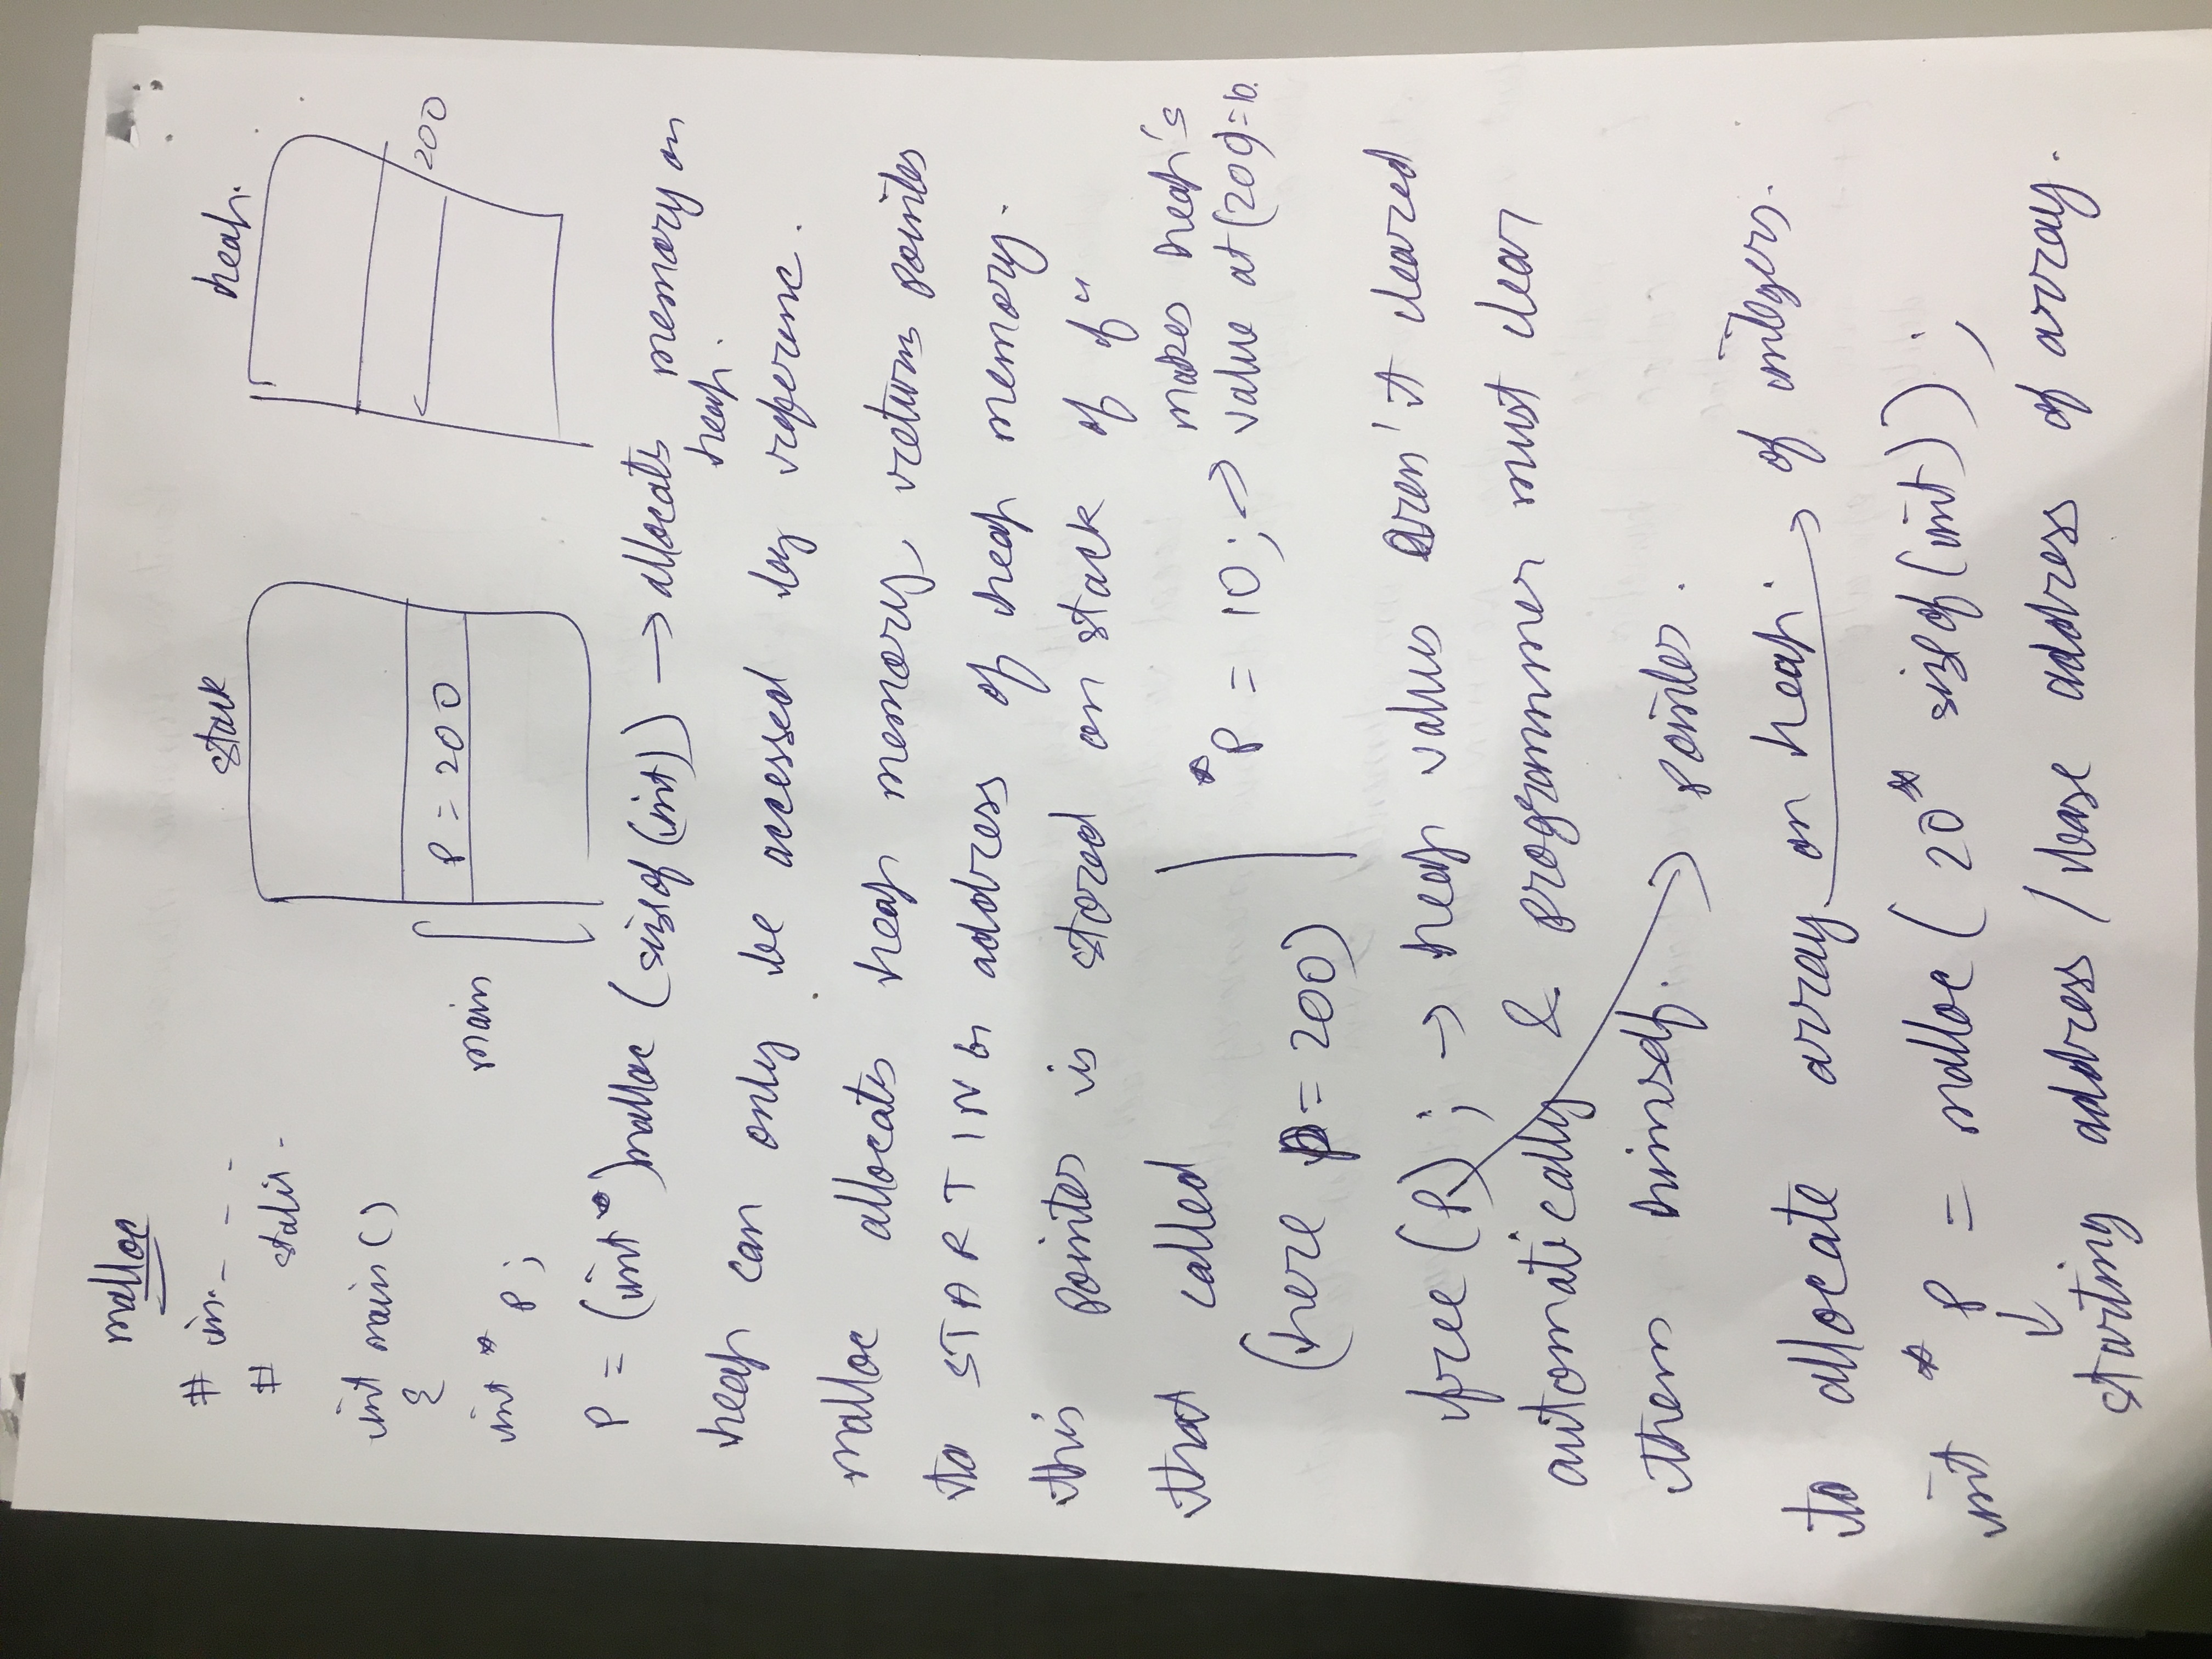 malloc
# in- - - -
# stdli -
int main ()
{
int * p ;
stack
heap.
main
P = 200
200
P = (int *)malloc (sizeof (int)) → allocates memory on
heap.
heap can only be accessed by reference.
malloc allocates heap memory, returns pointer
to STARTING address of heap memory.
this pointer is stored on stack of fⁿ
that called
(here p = 200)
*P = 10 ; → makes heap's
value at (200) = 10.
free (P) ; → heap values aren't cleared
automatically & programmer must clear
them himself. → pointer.
to allocate array on heap. → of integers.
int * P = malloc ( 20 * sizeof (int) ) ;
↓
starting address / base address of array.